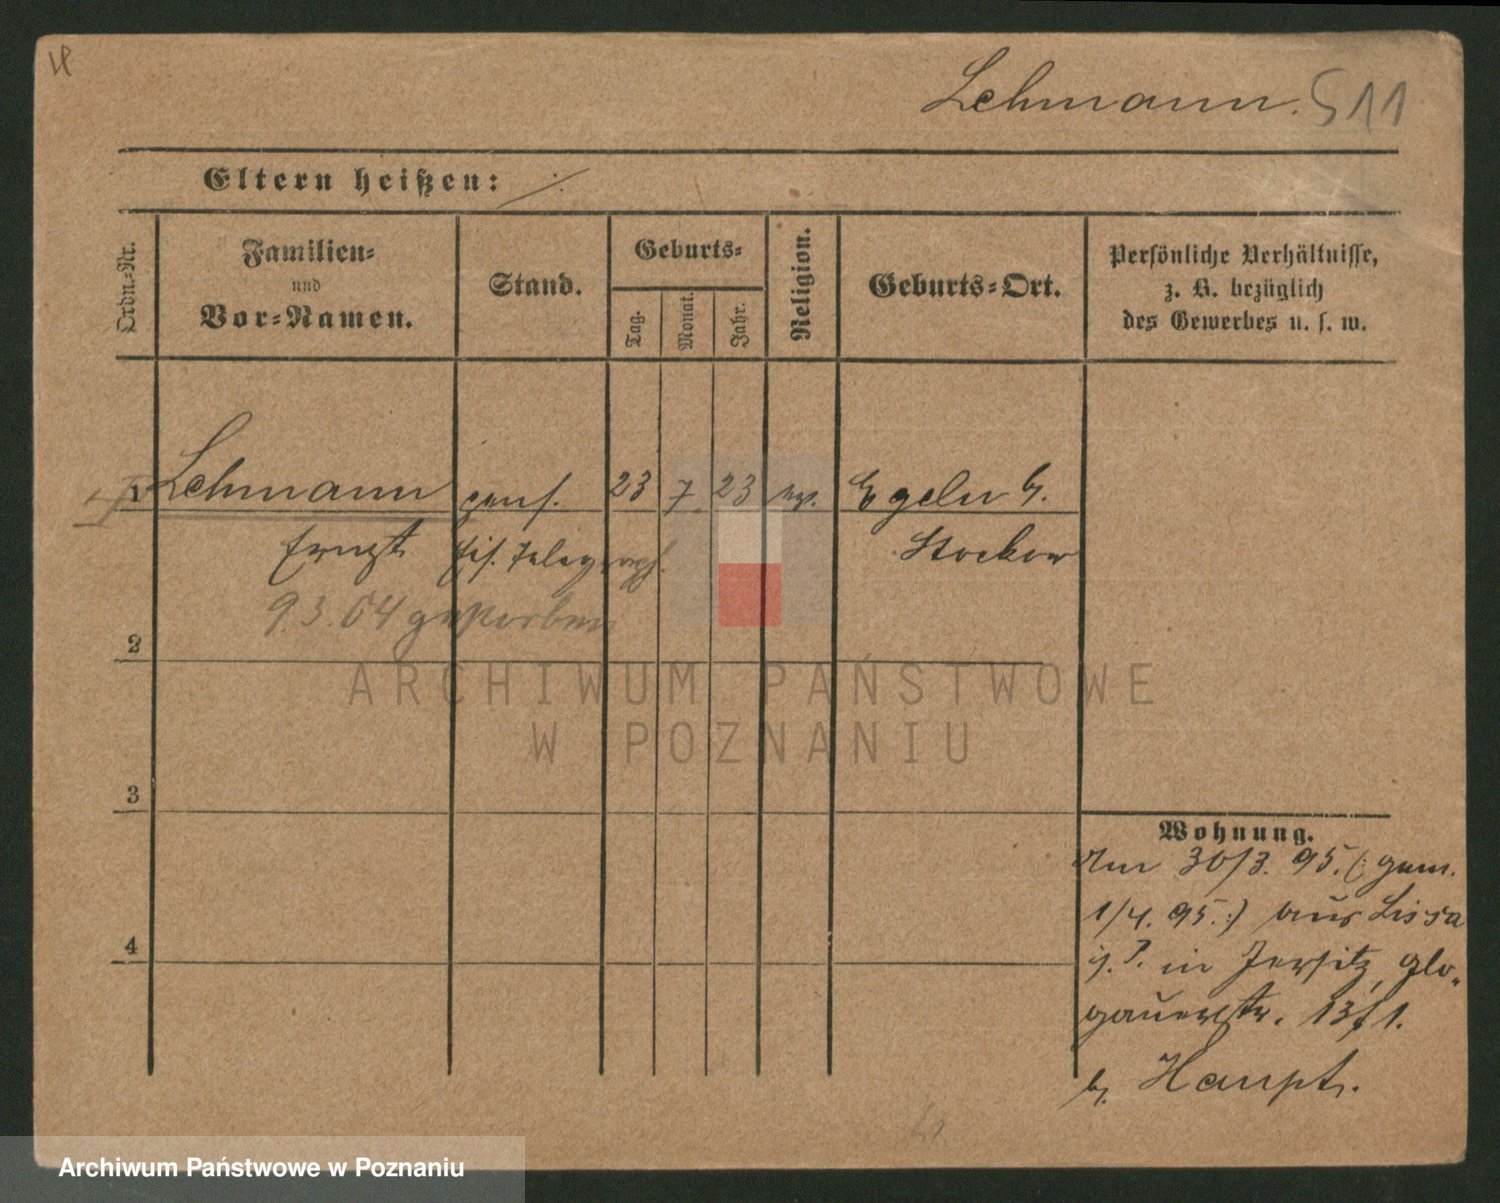 Lehmann. 511
Eltern heißen: ./.
Ordn.-Nr.
Familien-
und
Vor-Namen.
Stand.
Geburts-
Tag.
Monat.
Jahr.
Religion.
Geburts-Ort.
Persönliche Verhältnisse,
z. B. bezüglich
des Gewerbes u. s. w.
1 Lehmann pens. 23 7. 23 ev. Egeln b.
Ernst Eis. Telegraph. Stockow
9.3.04 gestorben
2
ARCHIWUM PAŃSTWOWE
W POZNANIU
3
4
Wohnung.
Am 30/3. 95. (: gem.
1/4. 95. :) aus Lissa
i. P. in Jersitz, Glo-
gauerstr. 13 f 1.
b. Haupt.
Archiwum Państwowe w Poznaniu